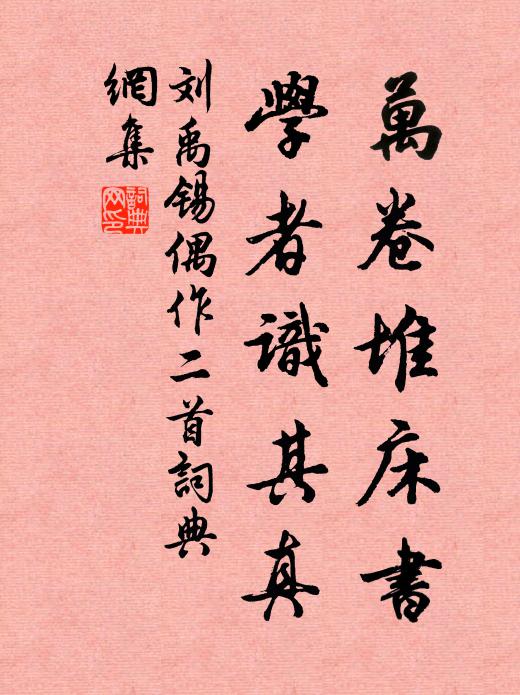 萬卷堆床書
學者識其真
刘禹锡偶作二首詞典
網集
詞典
网印